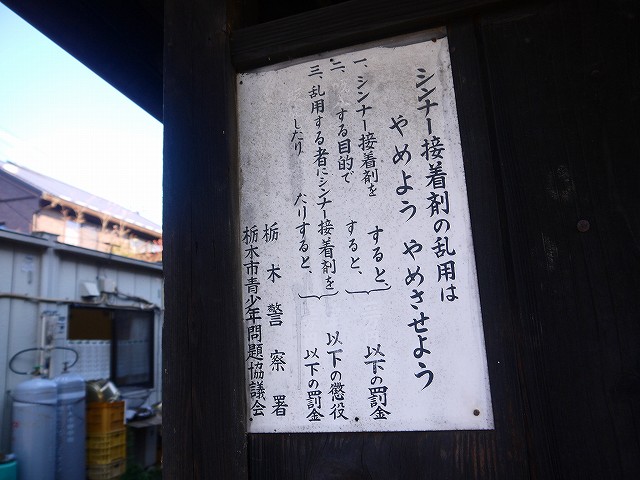 シンナー接着剤の乱用は
やめよう やめさせよう
一、シンナー接着剤を すると、
二、 する目的で すると、
以下の罰金
三、乱用する者にシンナー接着剤を
したり たりすると、
以下の懲役
以下の罰金
栃木警察署
栃木市青少年問題協議会